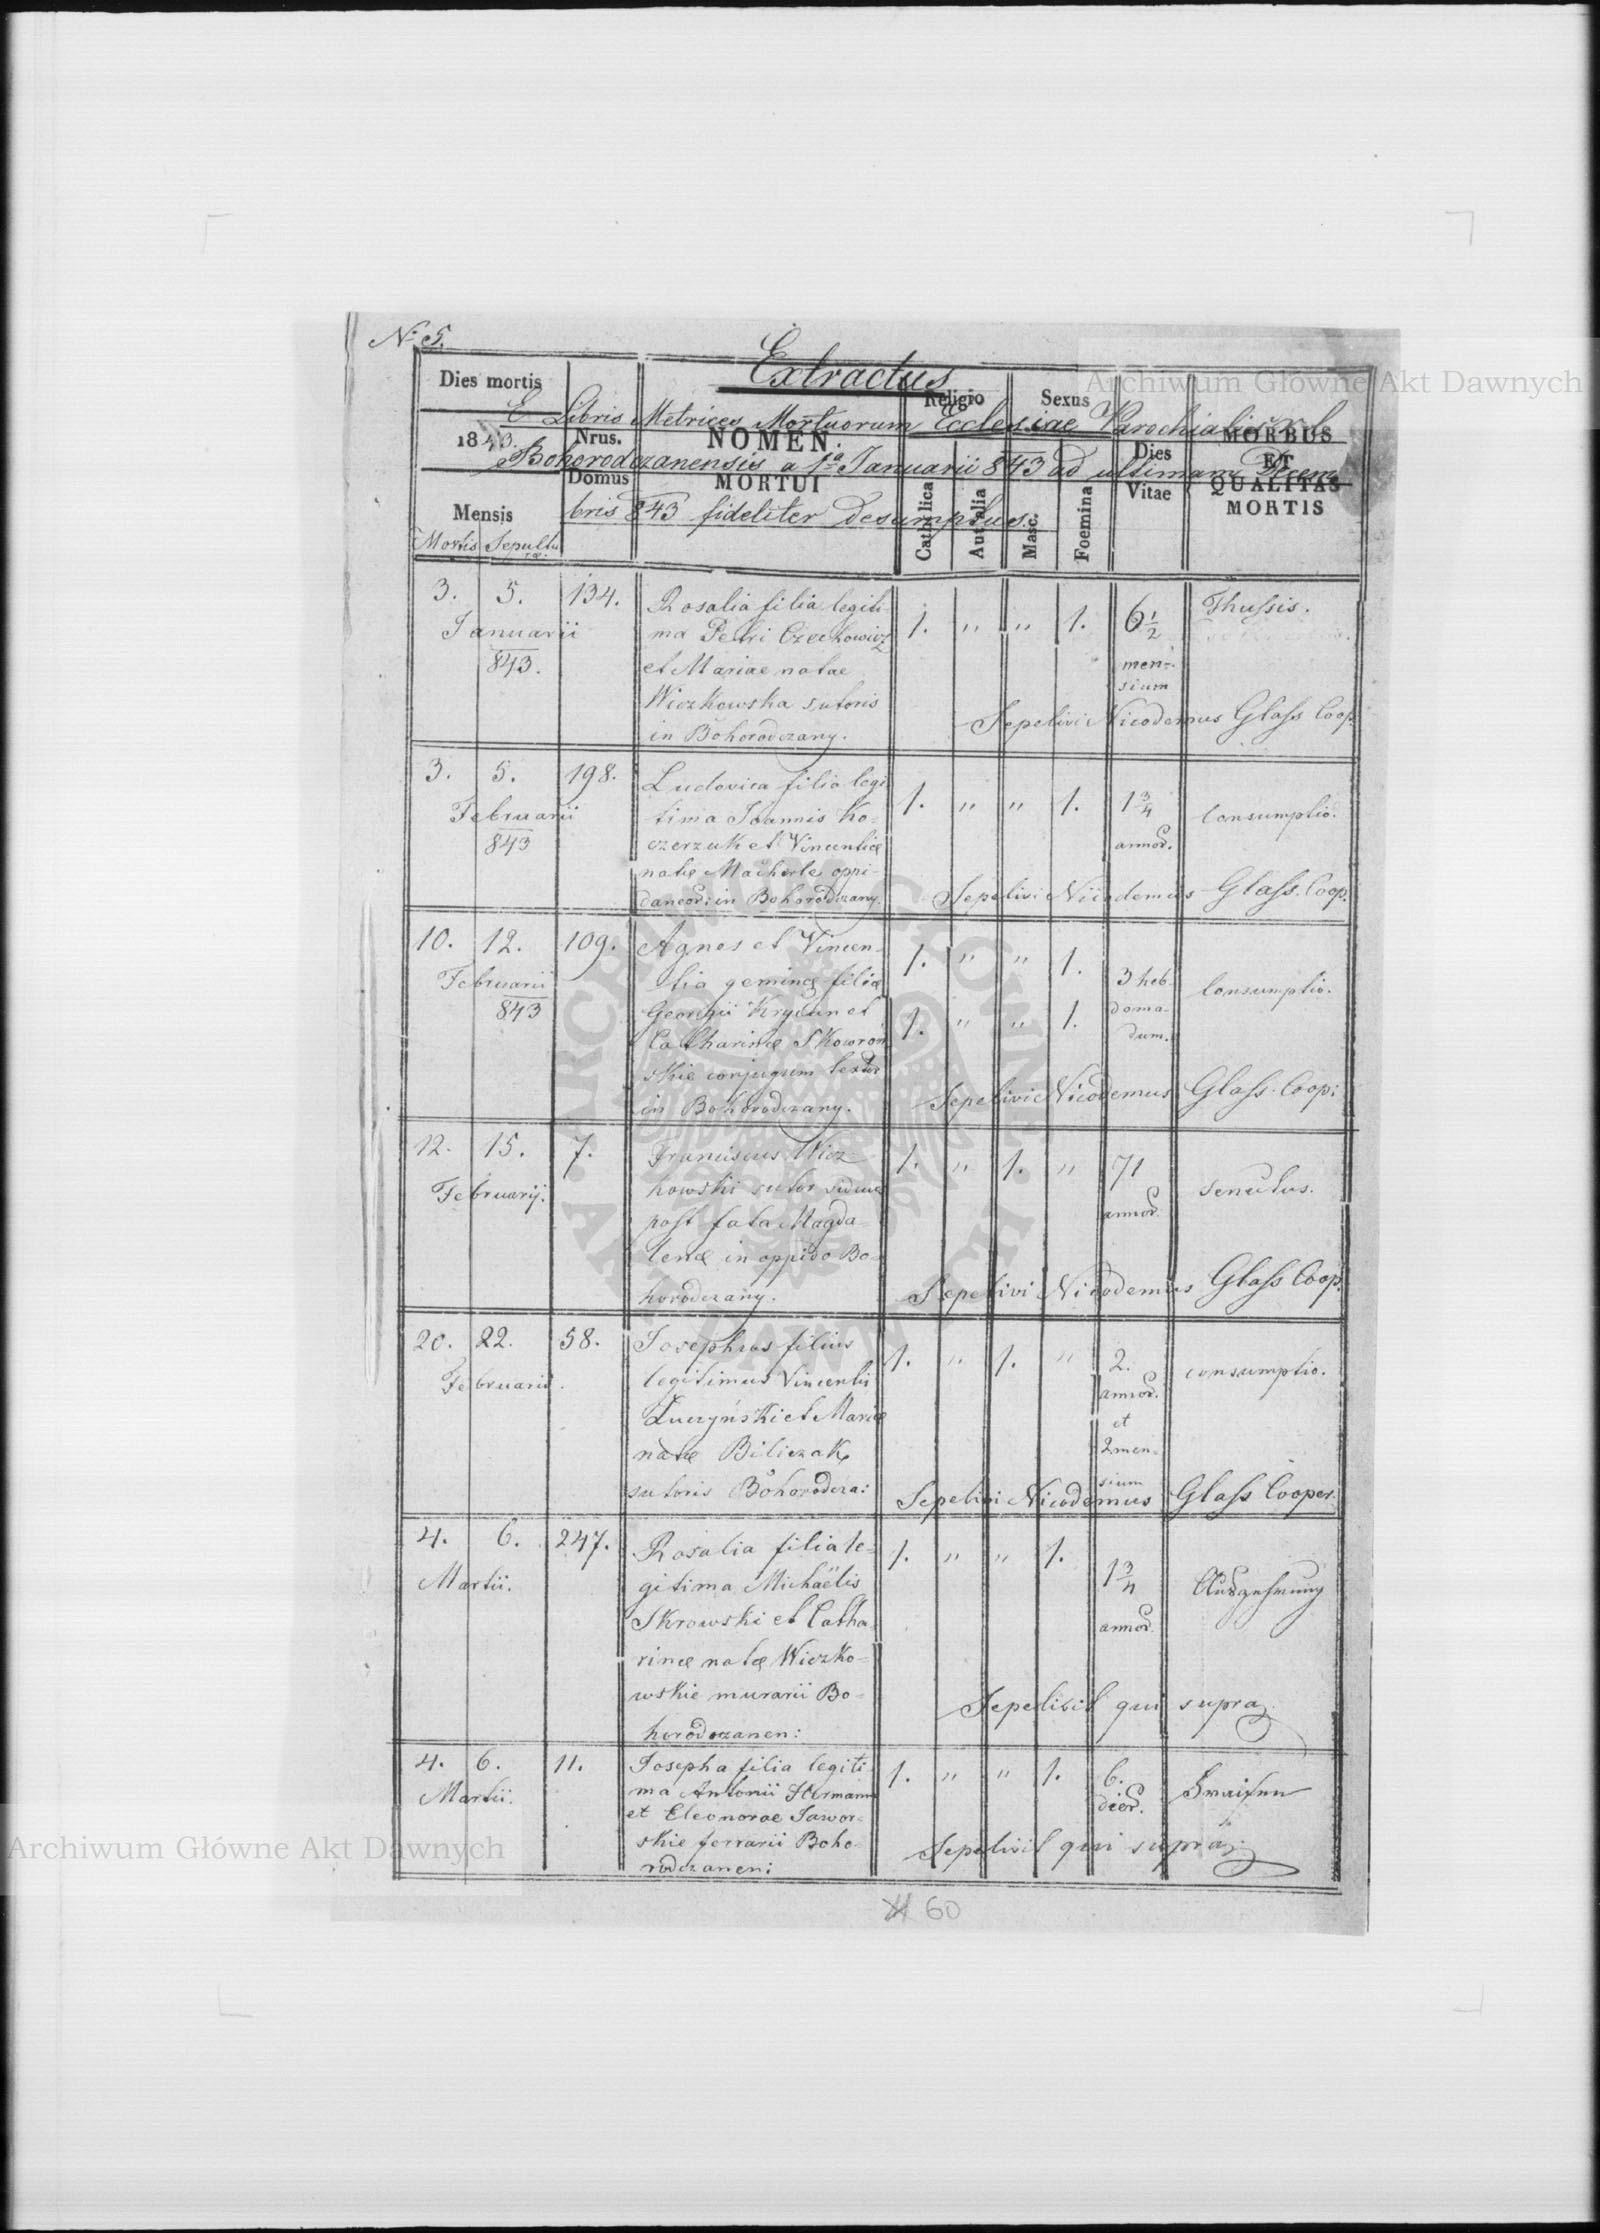 N: 5.
Extractus
E Libris Metrices Mortuorum Ecclesiae Parochialis
Bohorodczanensis a 1a Januarii 843 ad ultimam Decem
bris 843 fideliter desumptus.
Dies mortis
1843.
Mensis
Mortis Sepultu
rae.
Nrus.
Domus
NOMEN
MORTUI
Religio
Catholica
Aut alia
Sexus
Masc.
Foemina
Dies
Vitae
MORBUS
ET
QUALITAS
MORTIS
3. 5. 134.
Januarii
843.
Rosalia filia legiti-
ma Petri Czeckowicz
et Mariae natae
Wiczkowska sutoris
in Bohorodczany.
1. " " 1.
6 1/2
men-
sium
Thussis.
Sepelivi Nicodemus Glass Coop.
3. 5. 198.
Februarii
843
Ludovica filia legi
tima Joannis Ko-
czerzuk et Vincentiæ
natæ Macherle oppi-
daneor: in Bohorodczany.
1. " " 1.
1 3/4
annor.
Consumptio.
Sepelivi Nicodemus Glass. Coop.
10. 12. 109.
Februarii
843
Agnes et Vincen-
tia geminæ filiæ
Georgii et
Catharinæ Skowroń
skie conjugum
in Bohorodczany.
1. " " 1.
1. " " 1.
3 heb-
doma-
dum.
Consumptio.
Sepelivi Nicodemus Glass. Coop:
12. 15. 7.
Februarij.
Franciscus Wicz-
kowski sutor viduus
post fata Magda-
lenæ in oppido Bo-
horodczany.
1. " 1. "
71
annor.
Senectus.
Sepelivi Nicodemus Glass Coop.
20. 22. 58.
Februarii.
Josephus filius
legitimus Vincentii
Łuczyński et Mariæ
natæ Biliczak
sutoris Bohorodcza:
1. " 1. "
2.
annor.
et
2 men-
sium
consumptio.
Sepelivi Nicodemus Glass Cooper.
4. 6. 247.
Martii.
Rosalia filia le-
gitima Michaëlis
Skrowski et Catha
rinæ natæ Wiczko-
wskie murarii Bo-
horodczanen:
1. " " 1.
1 3/4
annor.
Auszehrung
Sepelivit qui supra
4. 6. 11.
Martii.
Josepha filia legiti
ma Antonii Hermann
et Eleonorae Jawor-
skie ferrarii Boho-
rodczanen:
1. " " 1.
6.
dier.
Sepelivit qui supra.
60
Archiwum Główne Akt Dawnych
Archiwum Główne Akt Dawnych
ARCHIWUM GŁÓWNE AKT DAWNYCH